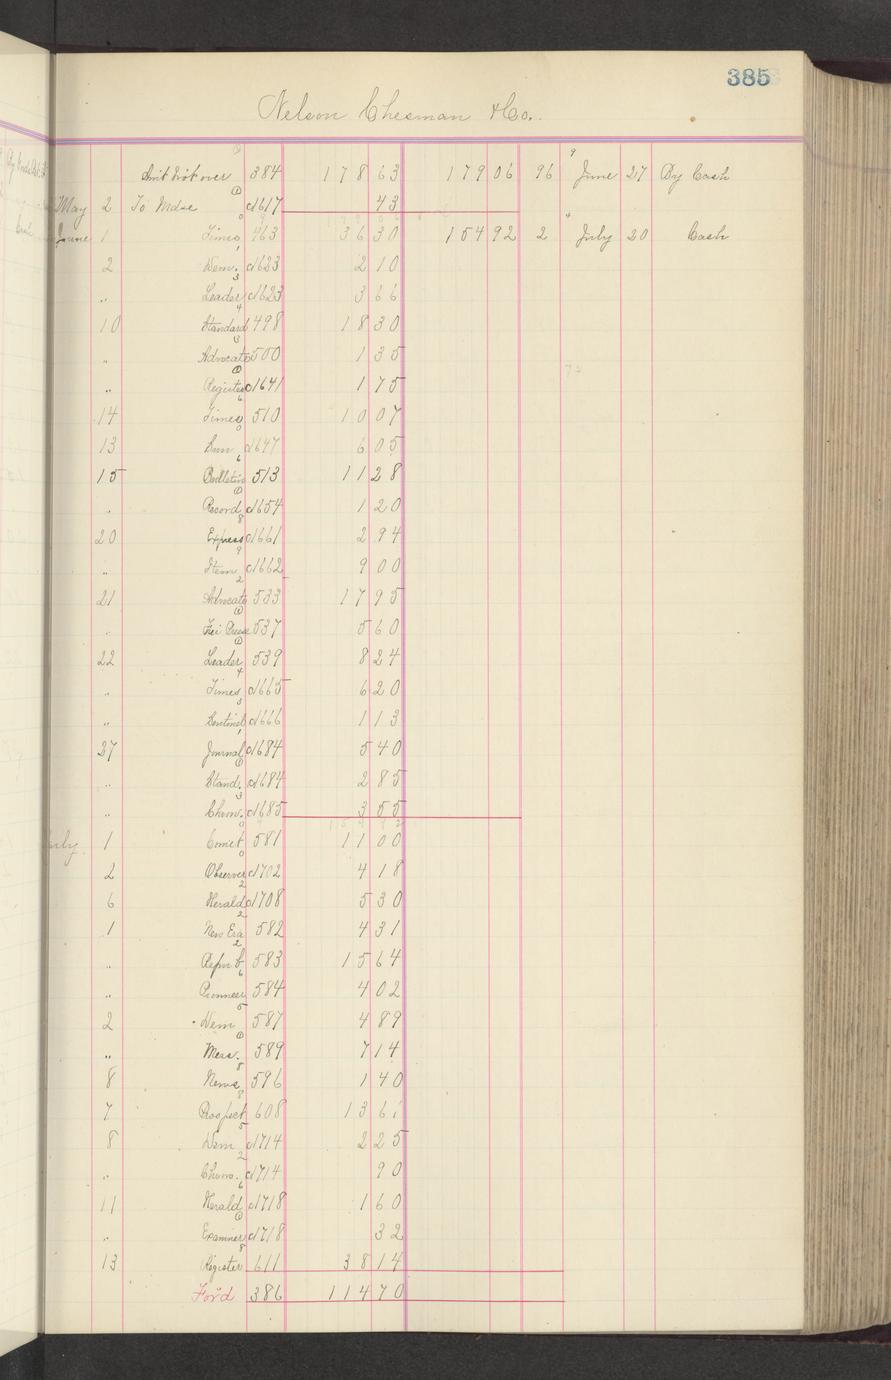 385
Nelson Chesman & Co.
Amt brot over 384 178 63 179 06 96 9 June 27 By Cash
May 2 To Mdse c1617 43
June 1 Times 463 36 30 154 92 2 4 July 20 Cash
2 Dem. c1623 2 10
" Leader c1623 3 66
10 Standard 498 18 30
" Advocate 500 1 35
" Register c1641 1 75
14 Times 510 10 07
13 Sun c1647 6 05
15 Bulletin 513 11 28
" Record c1654 1 20
20 Express c1661 2 94
" Item c1662 9 00
21 Advocate 533 17 95
" Free Press 537 5 60
22 Leader 539 8 24
" Times c1665 6 20
" Sentinel c1666 1 13
27 Journal c1684 5 40
" Stand. c1684 2 85
" Chron. c1685 3 55
July 1 Comet 581 11 00
2 Observer c1702 4 18
6 Herald c1708 5 30
1 New Era 582 4 31
" 583 15 64
" Pionneer 584 4 02
2 Dem 587 4 89
" Mess. 589 7 14
8 News 596 1 40
7 Prospect 608 13 61
8 Dem c1714 2 25
" Chron. c1714 90
11 Herald c1718 1 60
" Examiner c1718 32
13 Register 611 38 14
Ford 386 114 70